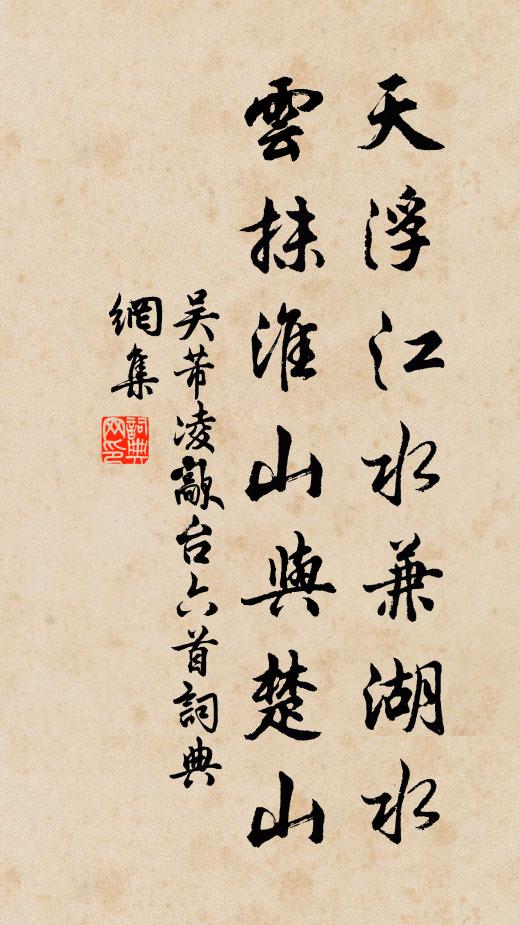 天浮江水兼湖水
雲抹淮山與楚山
吴芾凌歊台六首詞典
網集
詞典
网印